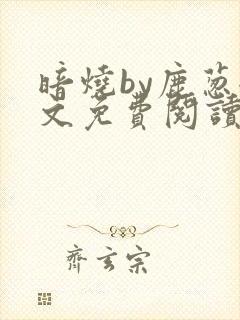 暗燒by鹿蔥
文免費閱讀
齊玄宗